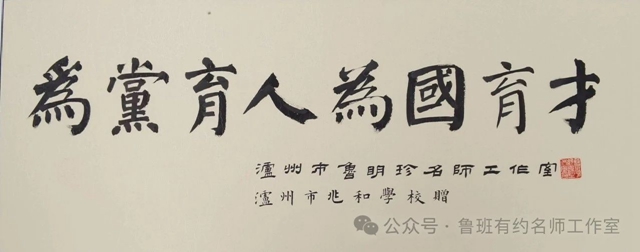 為黨育人為國育才
瀘州市魯明珍名師工作室
瀘州市兆和學校贈
公众号·鲁班有约名师工作室